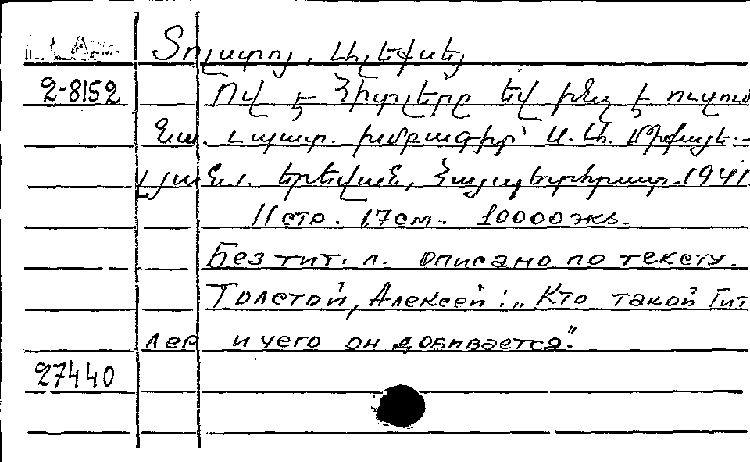 Տոլստոյ, Ալեքսեյ
2-8152 Ով է Հիտլերը եվ ինչ է ուզում
նա. պատ. խմբագիր՝ Ա. Ն. Միքայե-
լյան. Երեվան, Հայպետհրատ. 1941
11 стр. 17 см. 10000 экз.
Без тит. л. описано по тексту.
Толстой, Алексей: „Кто такой Гит
лер и чего он добивается".
27440